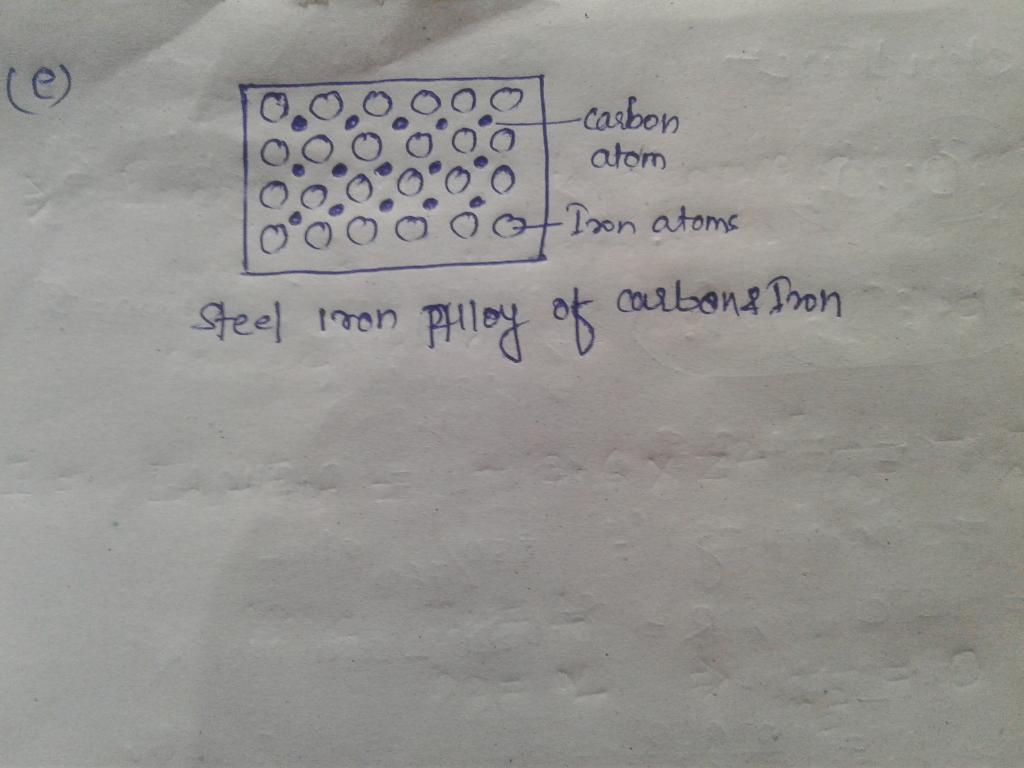 (e)
carbon
atom
Iron atoms
Steel iron Alloy of carbon & Iron